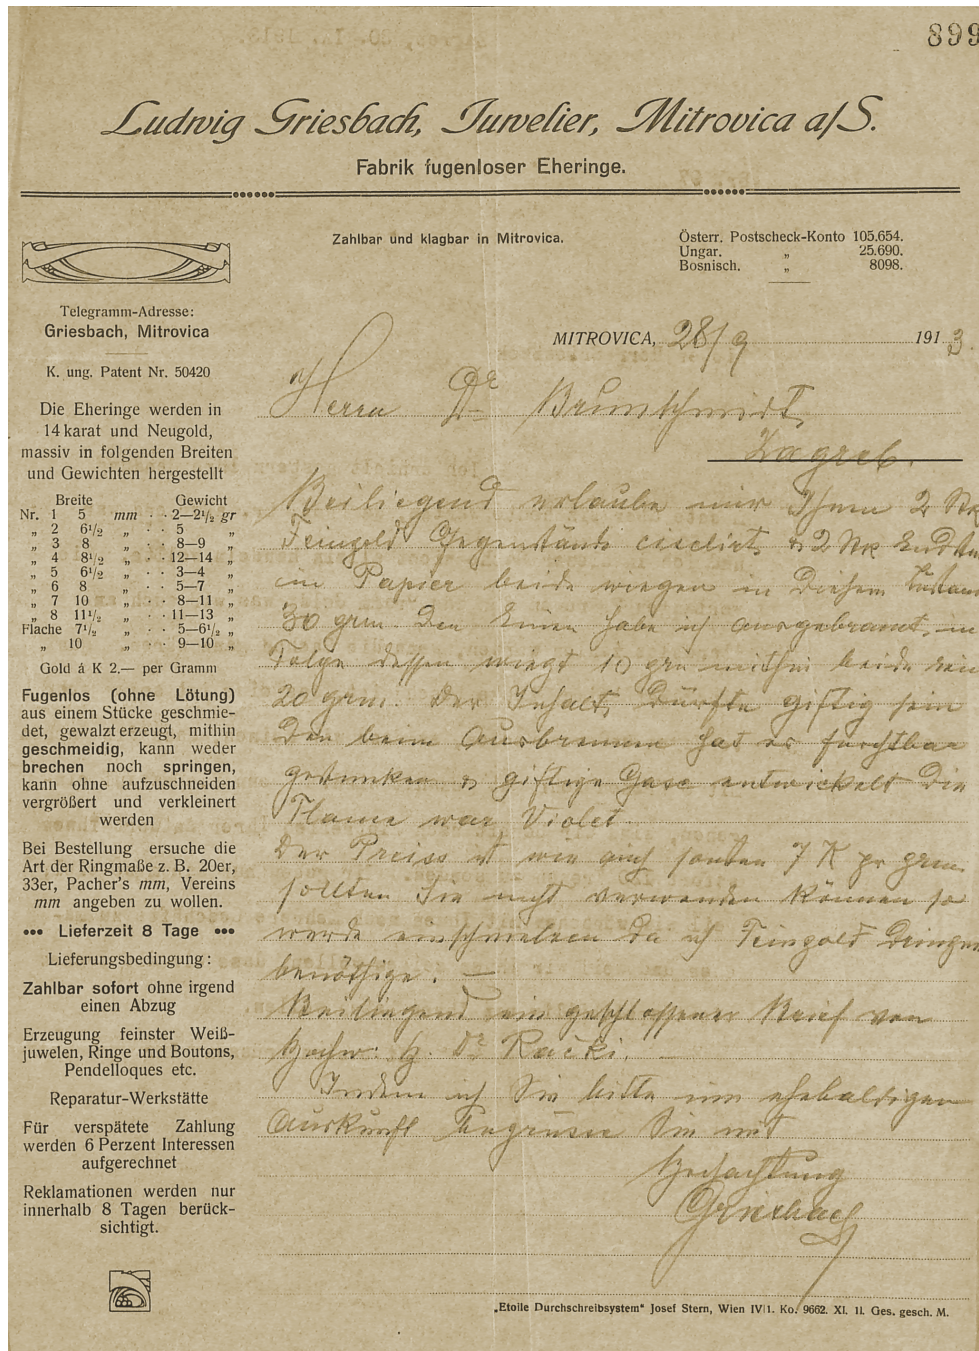 899
Ludwig Griesbach, Juwelier, Mitrovica a/S.
Fabrik fugenloser Eheringe.
Zahlbar und klagbar in Mitrovica.
Österr. Postscheck-Konto 105.654.
Ungar. „ 25.690.
Bosnisch. „ 8098.
Telegramm-Adresse:
Griesbach, Mitrovica
K. ung. Patent Nr. 50420
Die Eheringe werden in
14 karat und Neugold,
massiv in folgenden Breiten
und Gewichten hergestellt
Breite Gewicht
Nr. 1 5 mm · · 2—2½ gr
„ 2 6½ „ · · 5 „
„ 3 8 „ · · 8—9 „
„ 4 8½ „ · · 12—14 „
„ 5 6½ „ · · 3—4 „
„ 6 8 „ · · 5—7 „
„ 7 10 „ · · 8—11 „
„ 8 11½ „ · · 11—13 „
Flache 7½ „ · · 5—6½ „
„ 10 „ · · 9—10 „
Gold á K 2.— per Gramm
Fugenlos (ohne Lötung)
aus einem Stücke geschmie-
det, gewalzt erzeugt, mithin
geschmeidig, kann weder
brechen noch springen,
kann ohne aufzuschneiden
vergrößert und verkleinert
werden
Bei Bestellung ersuche die
Art der Ringmaße z. B. 20er,
33er, Pacher's mm, Vereins
mm angeben zu wollen.
••• Lieferzeit 8 Tage •••
Lieferungsbedingung:
Zahlbar sofort ohne irgend
einen Abzug
Erzeugung feinster Weiß-
juwelen, Ringe und Boutons,
Pendelloques etc.
Reparatur-Werkstätte
Für verspätete Zahlung
werden 6 Perzent Interessen
aufgerechnet
Reklamationen werden nur
innerhalb 8 Tagen berück-
sichtigt.
MITROVICA, 28/9 1913.
Herrn Dr Brunschmidt,
Zagreb.
Beiliegend erlaube mir Ihnen 2 Stk
Feingold Gegenstände ciselirt, & 2 Stk
im Papier beide wiegen in diesem
30 grm. Den Einen habe ich ausgebrannt, in
Folge dessen wiegt 10 grm mithin beide rein
20 grm. Der Inhalt, dürfte giftig sein
den beim Ausbrennen hat es furchtbar
gestunken & giftige Gase entwickelt die
Flame war Violet.
Der Preiss ist wie auch sonsten 7 K pr grm.
sollten Sie nicht verwenden können so
werde einschmelzen da ich Feingold dringen
benöthige. —
Beiliegend ein geschlossener Brief von
Hochw. H. Dr Rački. —
Indem ich Sie bitte um ehebaldigen
Auskunft begrüsse Sie mit
Hochachtung
Griesbach
„Etoile Durchschreibsystem" Josef Stern, Wien IV/1. Ko. 9662. XI. 11. Ges. gesch. M.